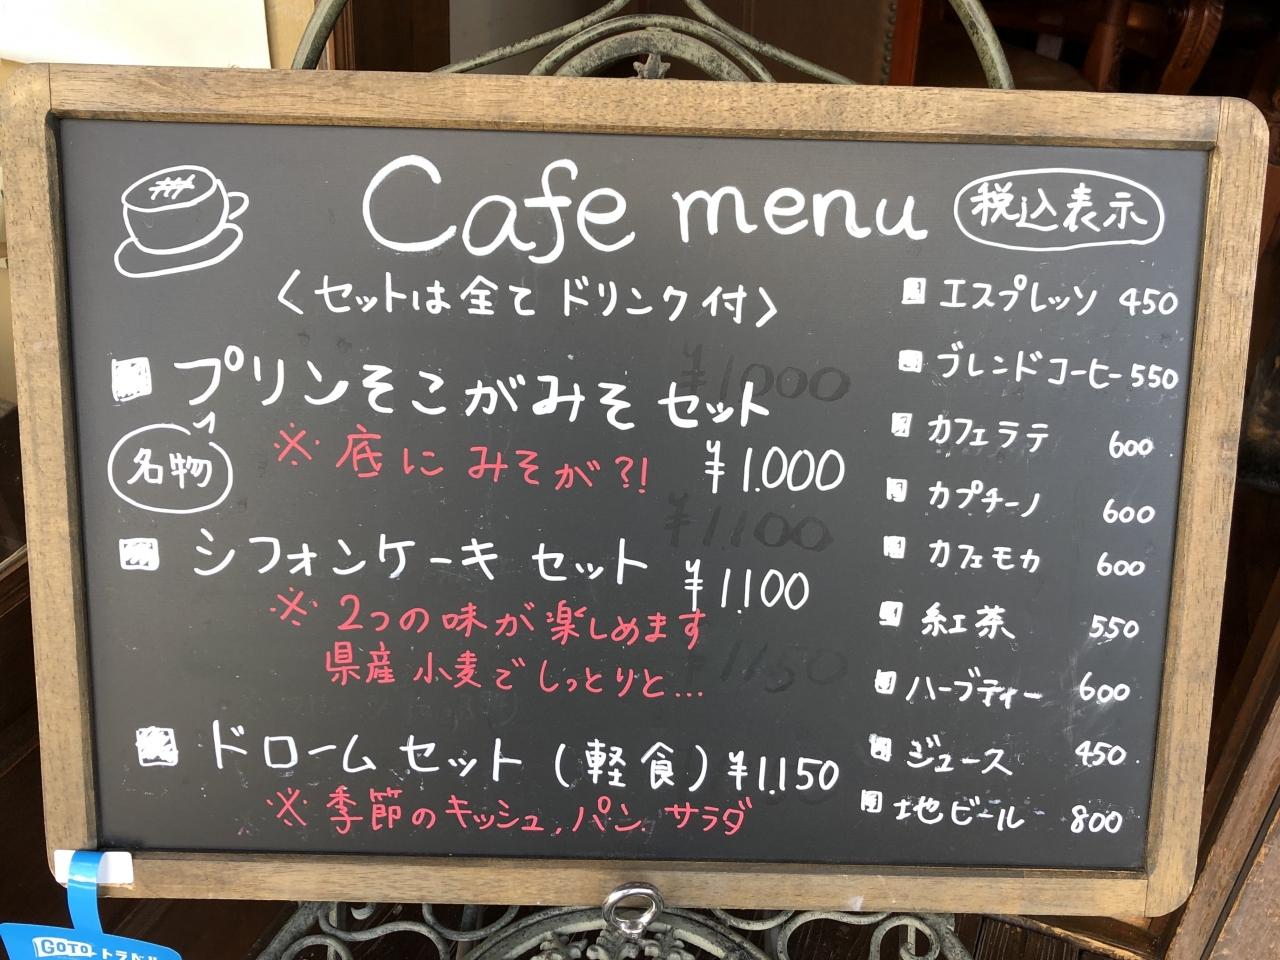 Cafe menu
税込表示
〈セットは全てドリンク付〉
プリンそこがみそセット
名物
※底にみそが?!
¥1.000
シフォンケーキ セット
¥1.100
※2つの味が楽しめます
県産小麦でしっとりと...
ドローム セット (軽食) ¥1.150
※季節のキッシュ, パン サラダ
エスプレッソ 450
ブレンドコーヒー 550
カフェラテ 600
カプチーノ 600
カフェモカ 600
紅茶 550
ハーブティー 600
ジュース 450
地ビール 800
¥1.000
¥1.100
¥1.150
GOTO トラベル